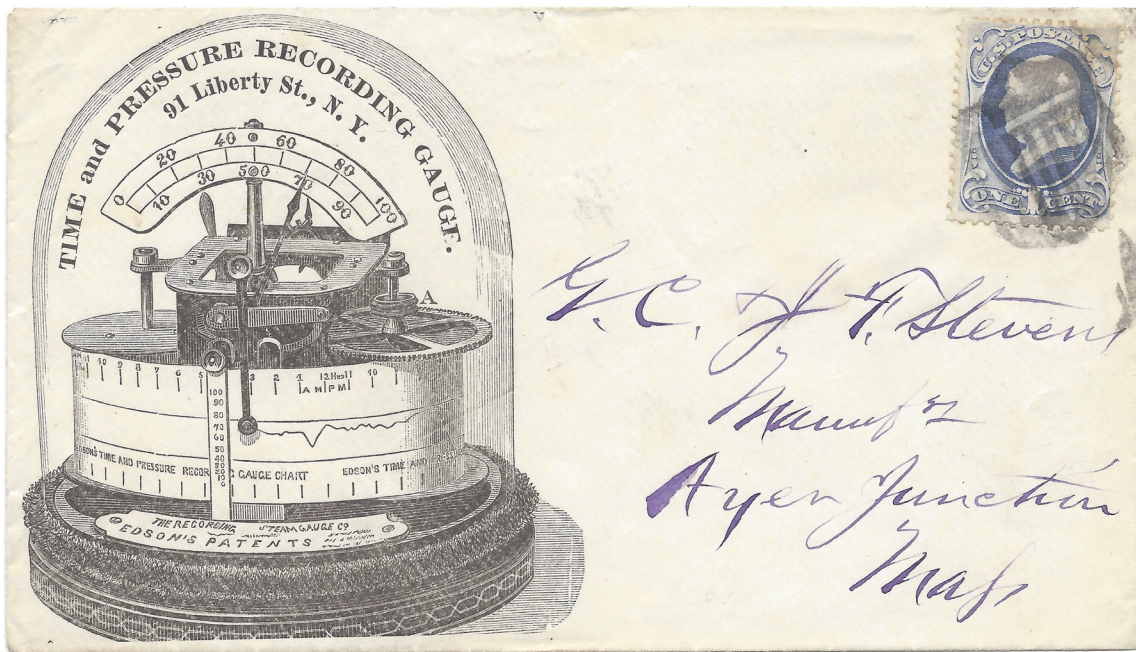 TIME and PRESSURE RECORDING GAUGE.
91 Liberty St., N. Y.
0 20 40 60 80 100
10 30 50 70 90
A
10 9 8 7 6 5 3 2 1 12 10 9
AM PM
100
90
80
70
60
50
40
30
20
10
0
EDSON'S TIME AND PRESSURE RECORDING GAUGE CHART EDSON'S TIME AND
THE RECORDING STEAM GAUGE CO
EDSON'S PATENTS
U.S. POSTAGE
ONE CENT
G. C. & J. F. Stevens
Manufrs
Ayer Junction
Mass